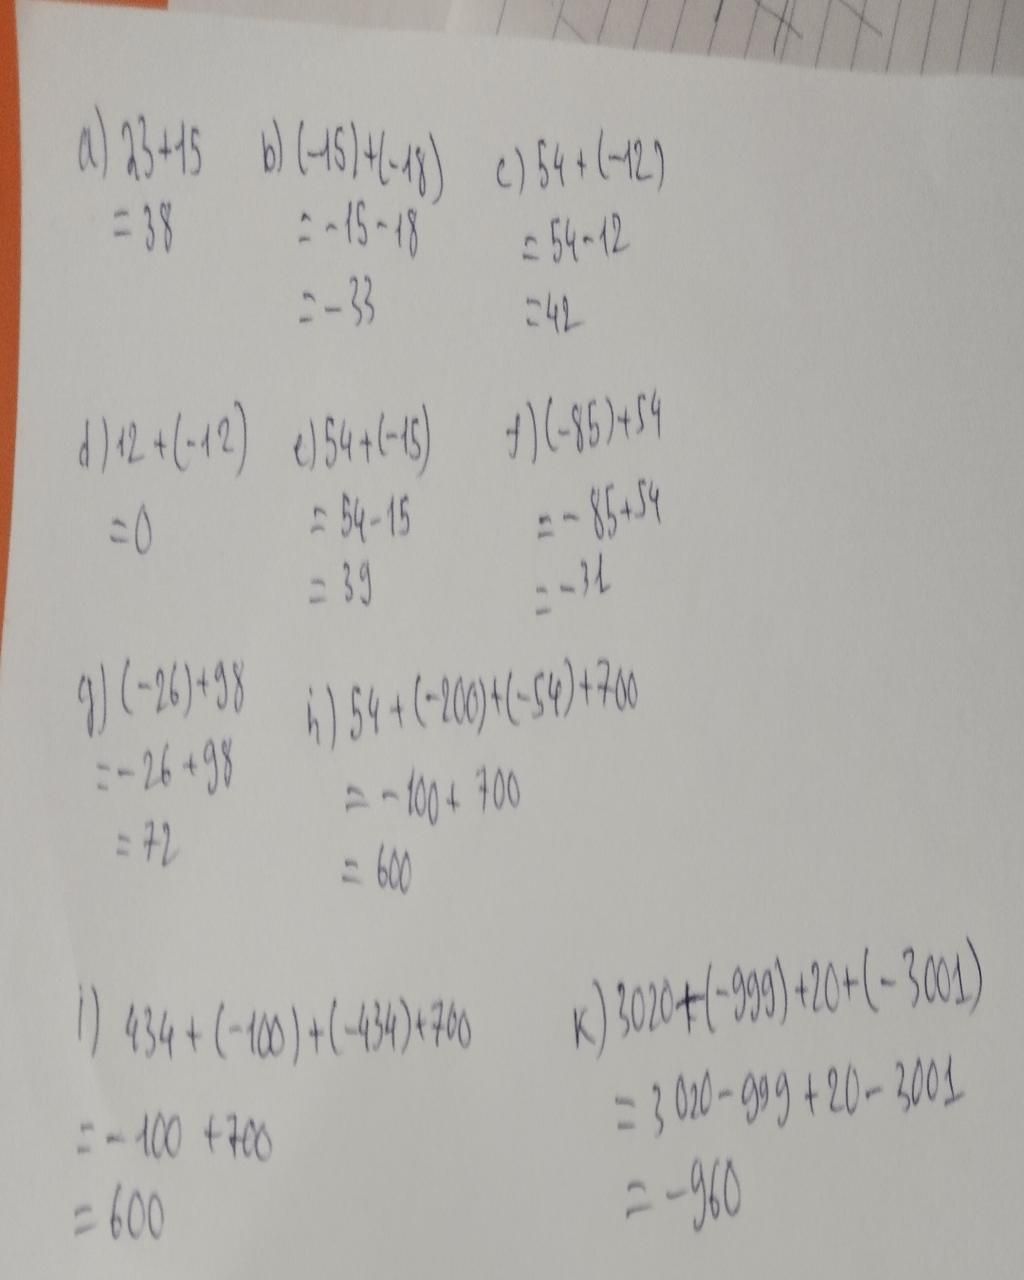 a) 23+15 b) (-15)+(-18) c) 54+(-12)
=38 =-15-18 =54-12
=-33 =42
d) 12+(-12) e) 54+(-15) f) (-85)+54
=0 =54-15 =-85+54
=39 =-31
g) (-26)+98 h) 54+(-200)+(-54)+700
=-26+98 =-100+700
=72 =600
i) 434+(-100)+(-434)+700 k) 3020+(-999)+20+(-3001)
=-100+700 =3020-999+20-3001
=600 =-960